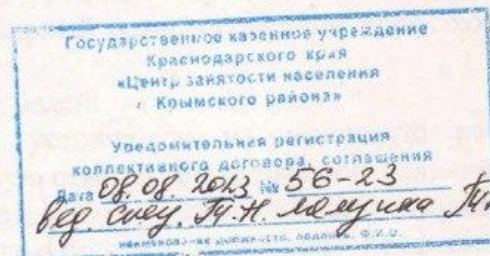 Государственное казенное учреждение
Краснодарского края
«Центр занятости населения
Крымского района»
Уведомительная регистрация
коллективного договора, соглашения
Дата 08.08.2023 № 56-23
вед. спец. Т.Н.
наименование должности, подпись, Ф.И.О.